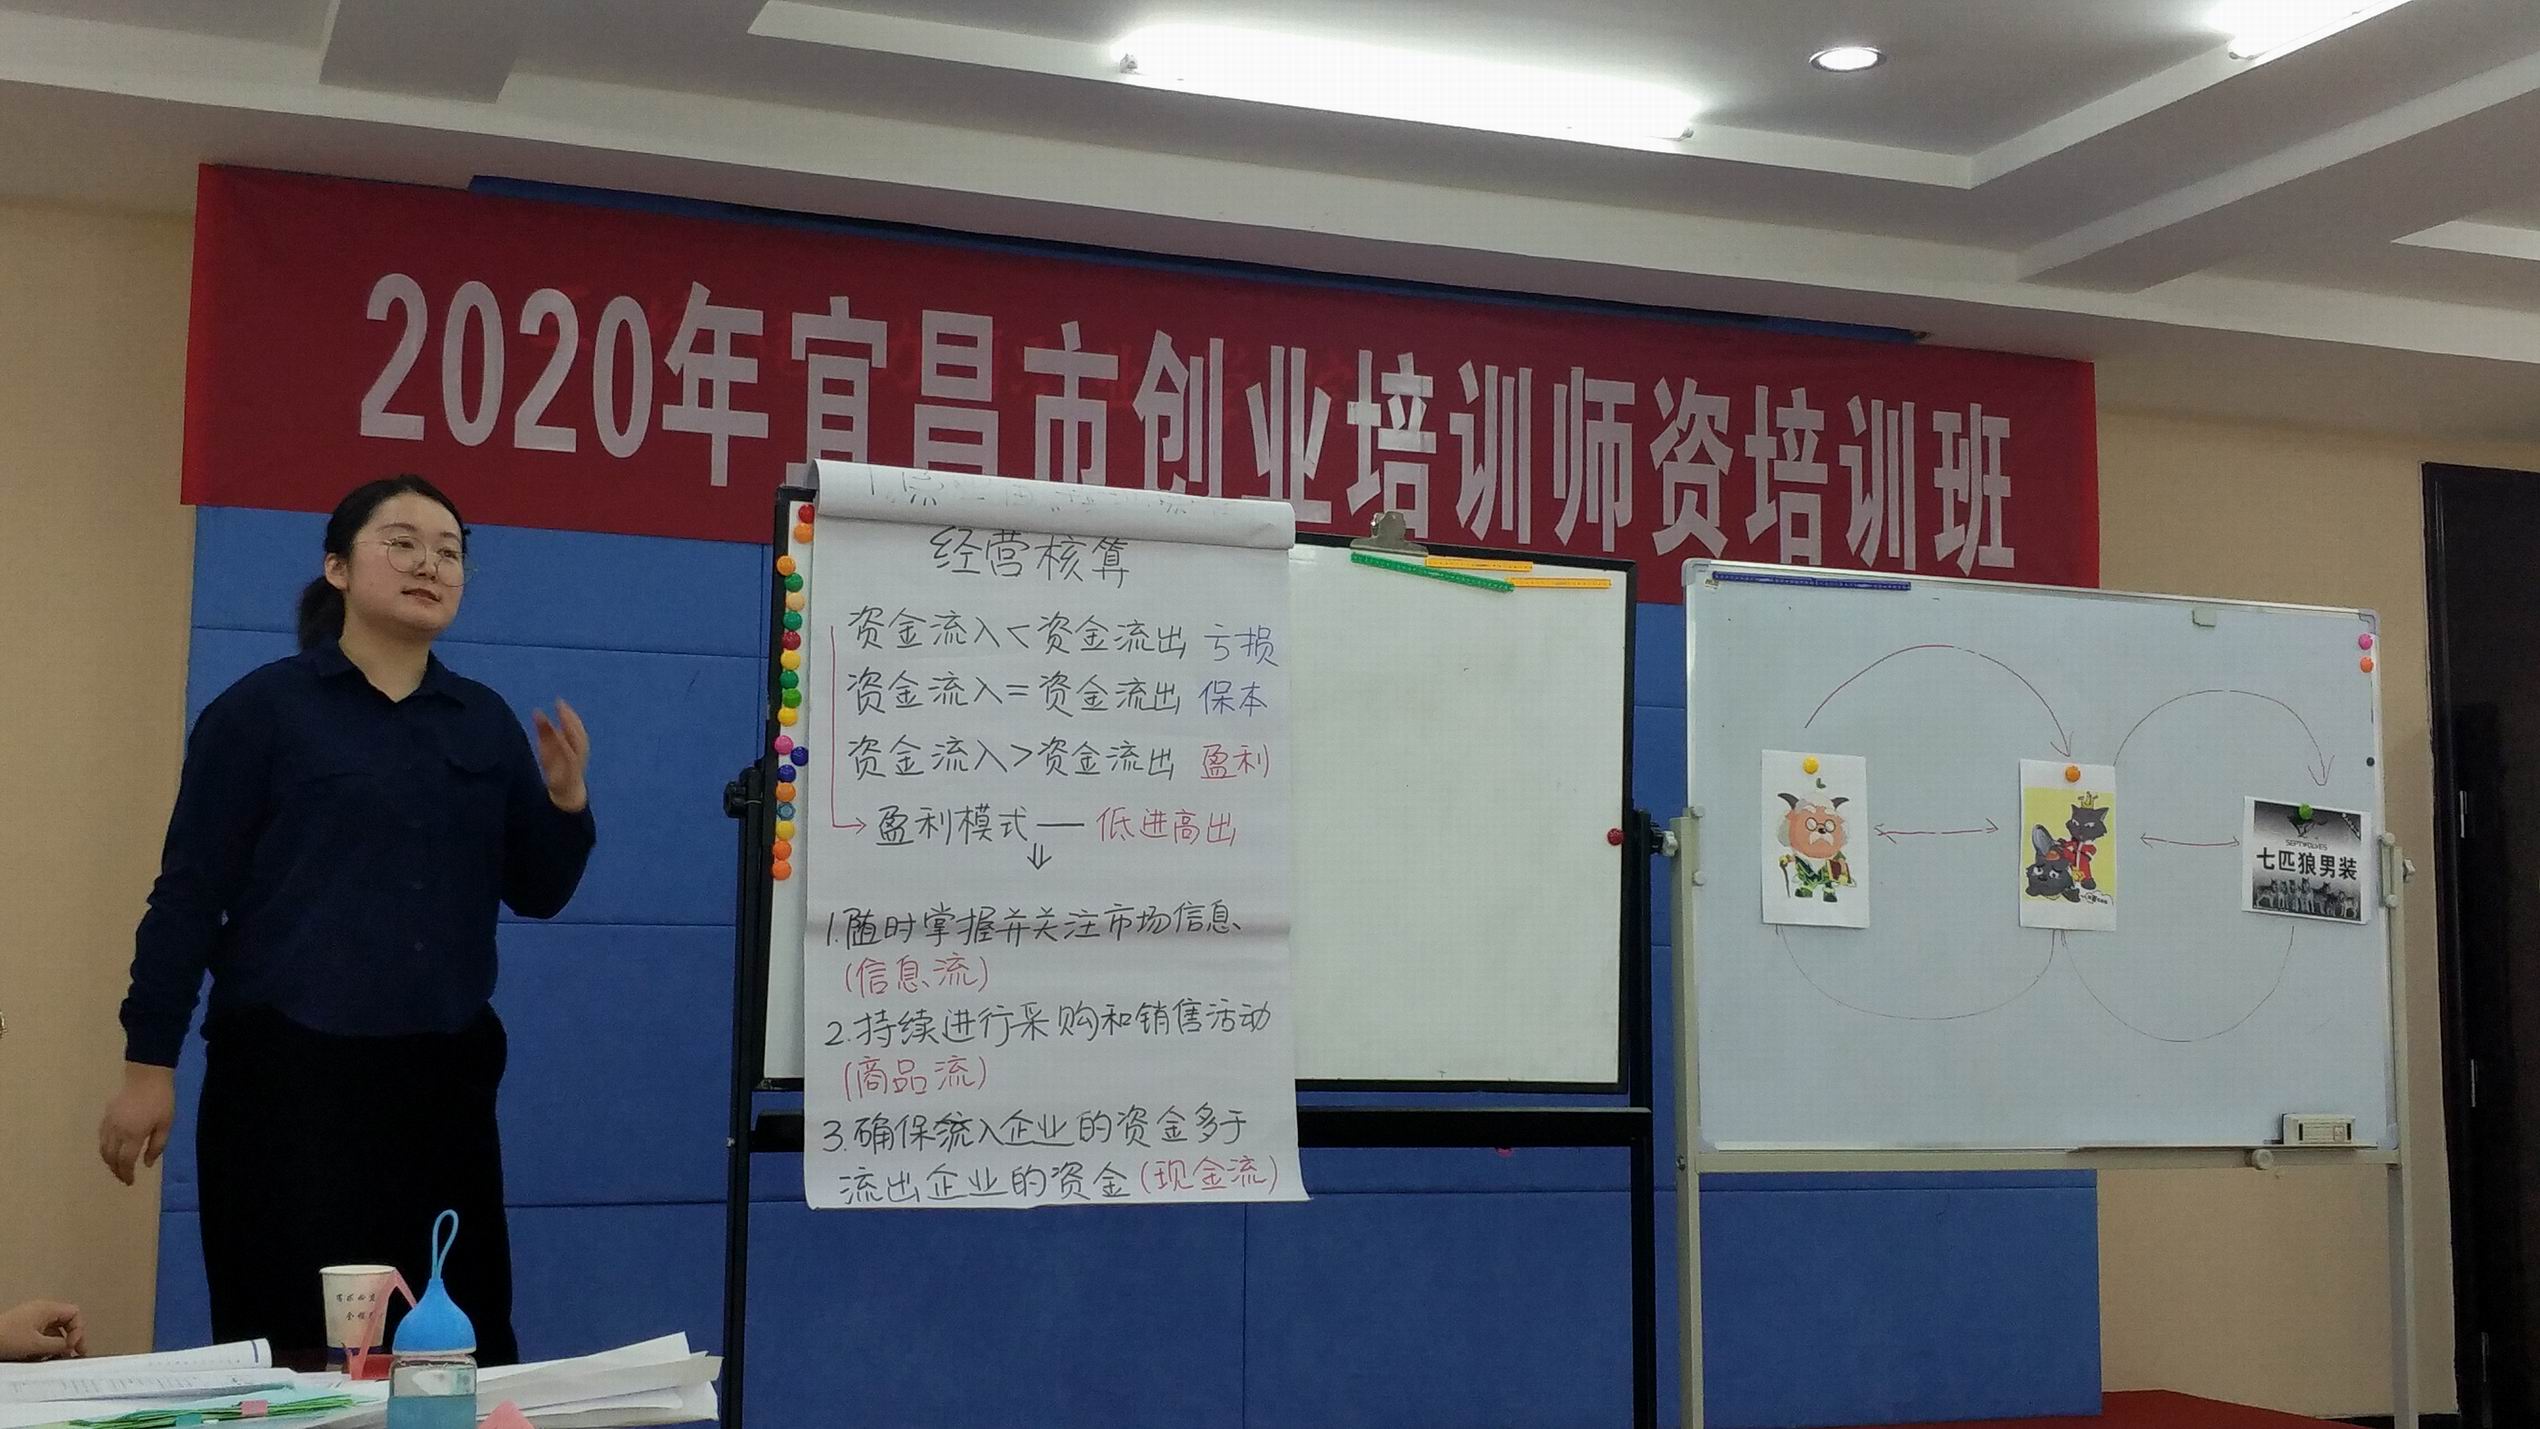 2020年宜昌市创业培训师资培训班
经营核算
资金流入<资金流出 亏损
资金流入=资金流出 保本
资金流入>资金流出 盈利
→盈利模式—低进高出
⇓
1.随时掌握并关注市场信息、
(信息流)
2.持续进行采购和销售活动
(商品流)
3.确保流入企业的资金多于
流出企业的资金(现金流)
SEPTWOLVES
七匹狼男装